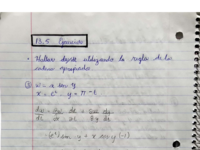 13.5 Ejercicios
• Hallar dw/dt utilizando la regla de la
cadena apropiada.
① w = x sen y
x = e^t, y = π - t
dw/dt = ∂w/∂x dx/dt + ∂w/∂y dy/dt
(e^t) sen y + x cos y (-1)